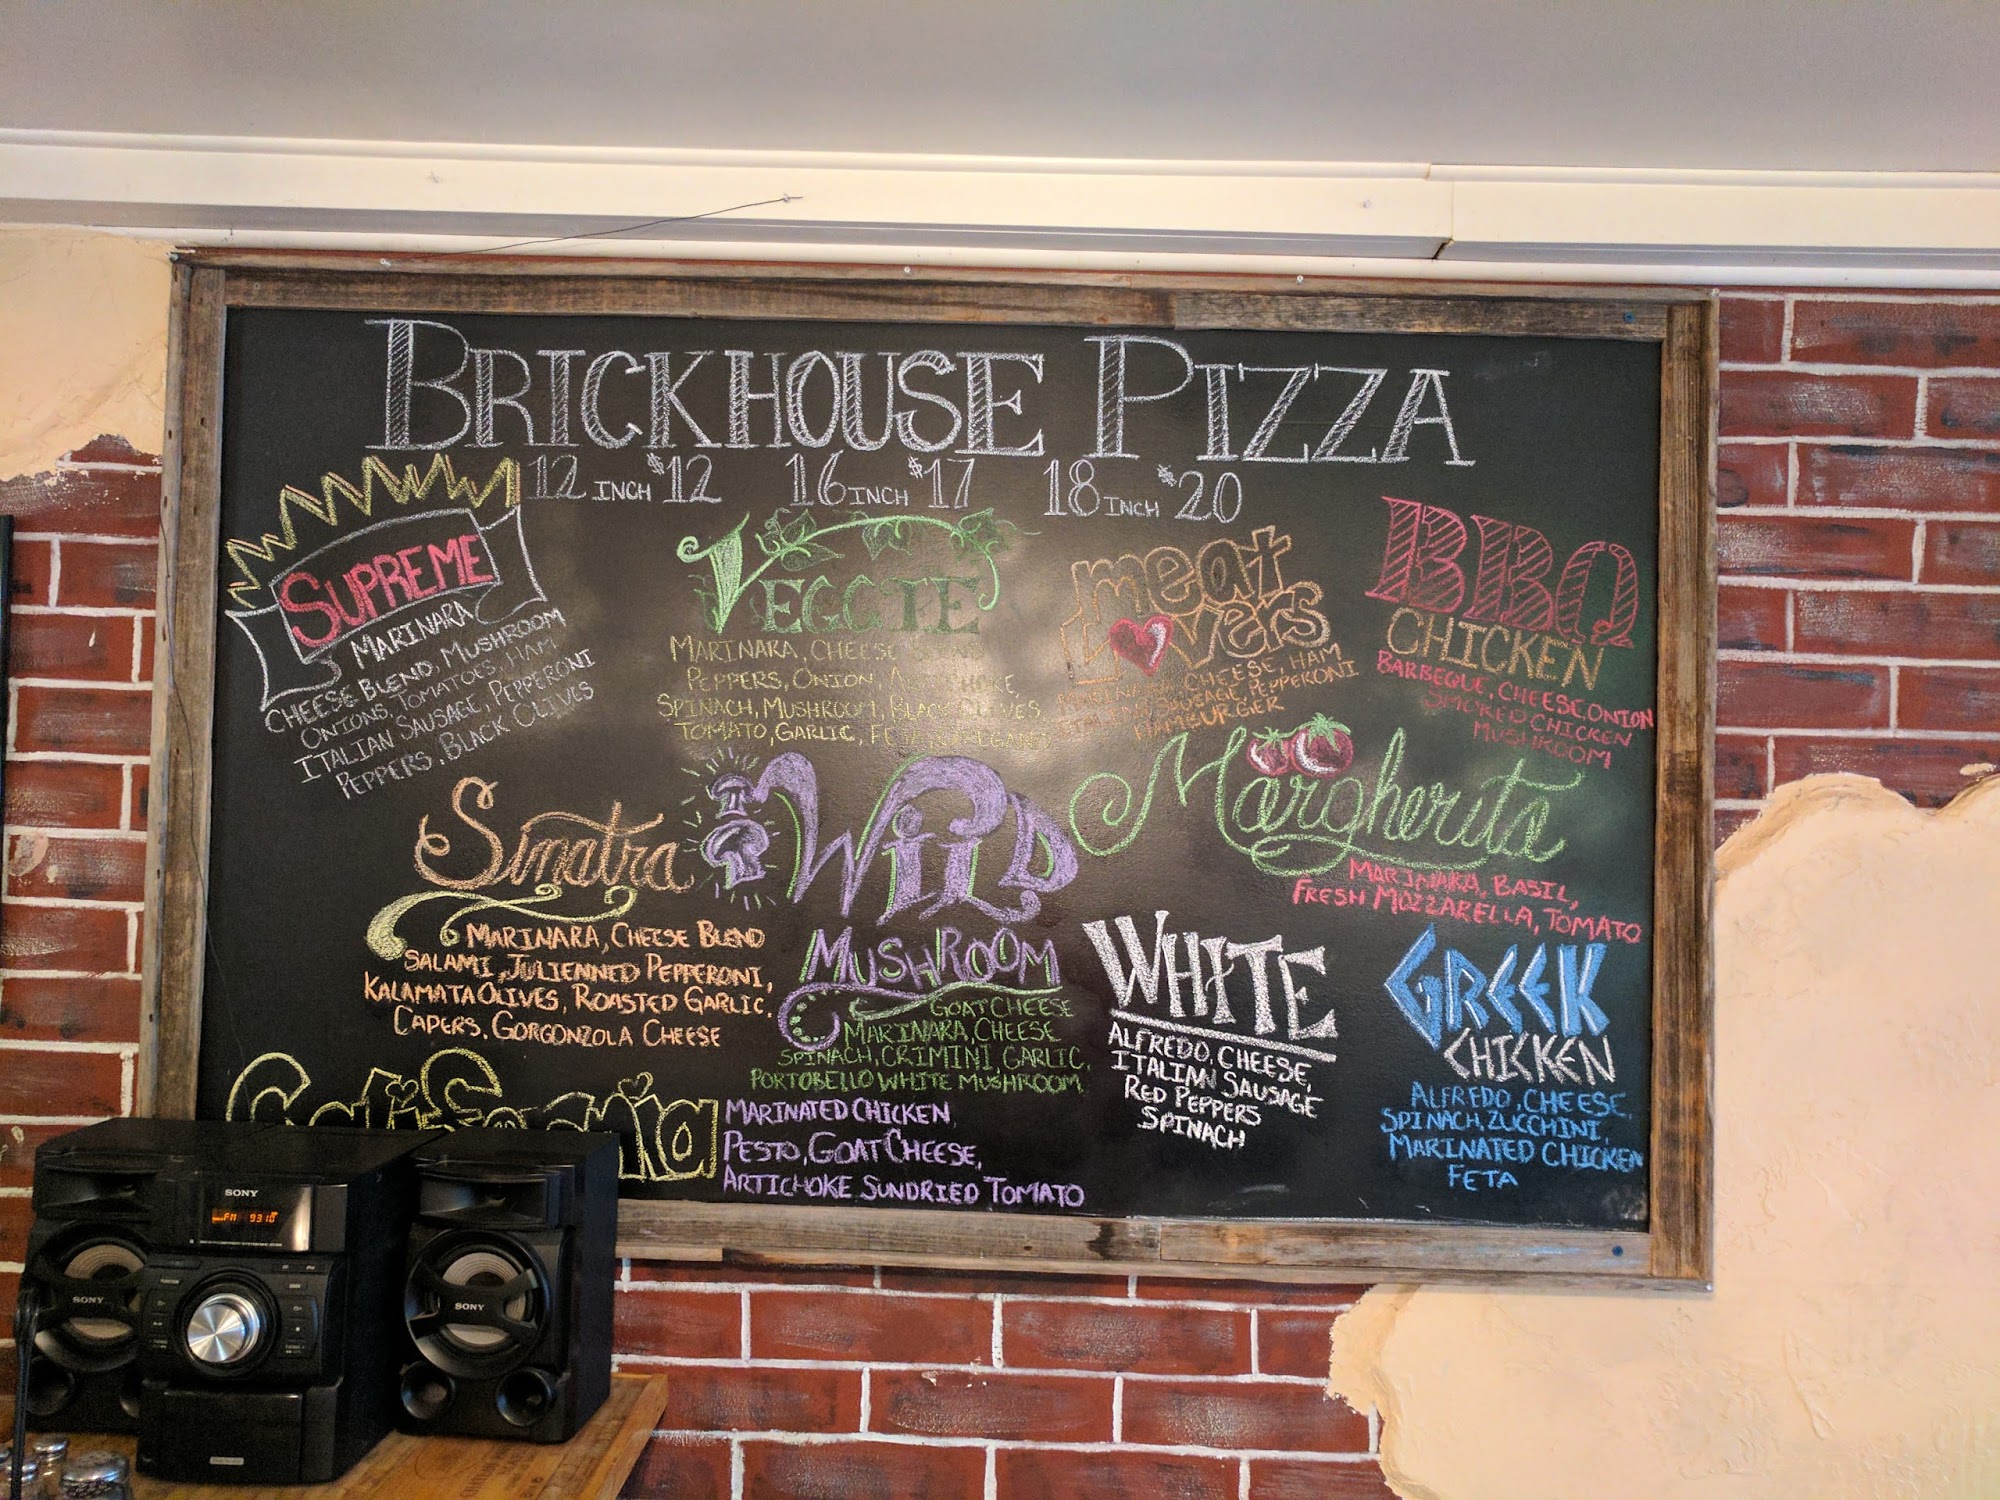 BRICKHOUSE PIZZA
12 INCH $12 16 INCH $17 18 INCH $20
SUPREME
MARINARA
CHEESE BLEND, MUSHROOM
ONIONS, TOMATOES, HAM
ITALIAN SAUSAGE, PEPPERONI
PEPPERS, BLACK OLIVES
VEGGIE
MARINARA, CHEESE BLEND
PEPPERS, ONION, ARTICHOKE,
SPINACH, MUSHROOM, BLACK OLIVES,
TOMATO, GARLIC, FETA, OREGANO
meat
Lovers
MARINARA, CHEESE, HAM
ITALIAN SAUSAGE, PEPPERONI
HAMBURGER
BBQ
CHICKEN
BARBEQUE, CHEESE, ONION
SMOKED CHICKEN
MUSHROOM
Sinatra
MARINARA, CHEESE BLEND
SALAMI, JULIENNED PEPPERONI,
KALAMATA OLIVES, ROASTED GARLIC,
CAPERS, GORGONZOLA CHEESE
WILD
MUSHROOM
GOAT CHEESE
MARINARA, CHEESE
SPINACH, CRIMINI, GARLIC,
PORTOBELLO WHITE MUSHROOM
Margherita
MARINARA, BASIL,
FRESH MOZZARELLA, TOMATO
WHITE
ALFREDO, CHEESE,
ITALIAN SAUSAGE
RED PEPPERS
SPINACH
GREEK
CHICKEN
ALFREDO, CHEESE,
SPINACH, ZUCCHINI,
MARINATED CHICKEN
FETA
California
MARINATED CHICKEN,
PESTO, GOAT CHEESE,
ARTICHOKE SUNDRIED TOMATO
SONY
FM 93.10
SONY
SONY